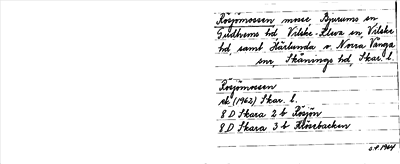 Rösjömossen mosse Bjurums sn
Gudhems hd Vilske-Kleva sn, Vilske
hd, samt Härlunda o. Norra Vånga
snr, Skånings hd, Skar. l.
Rösjömossen
ek. (1962) Skar. l.
8 D Skara 2 b Rösjön
8 D Skara 3 b Klösebacken
1964